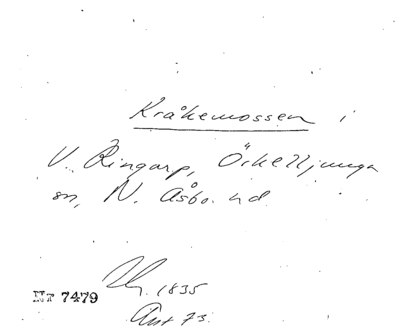 Kråkemossen i
V. Ringarp, Örkelljunga
sn, N. Åsbo hd
1835
Nr 7479
Ant 73.